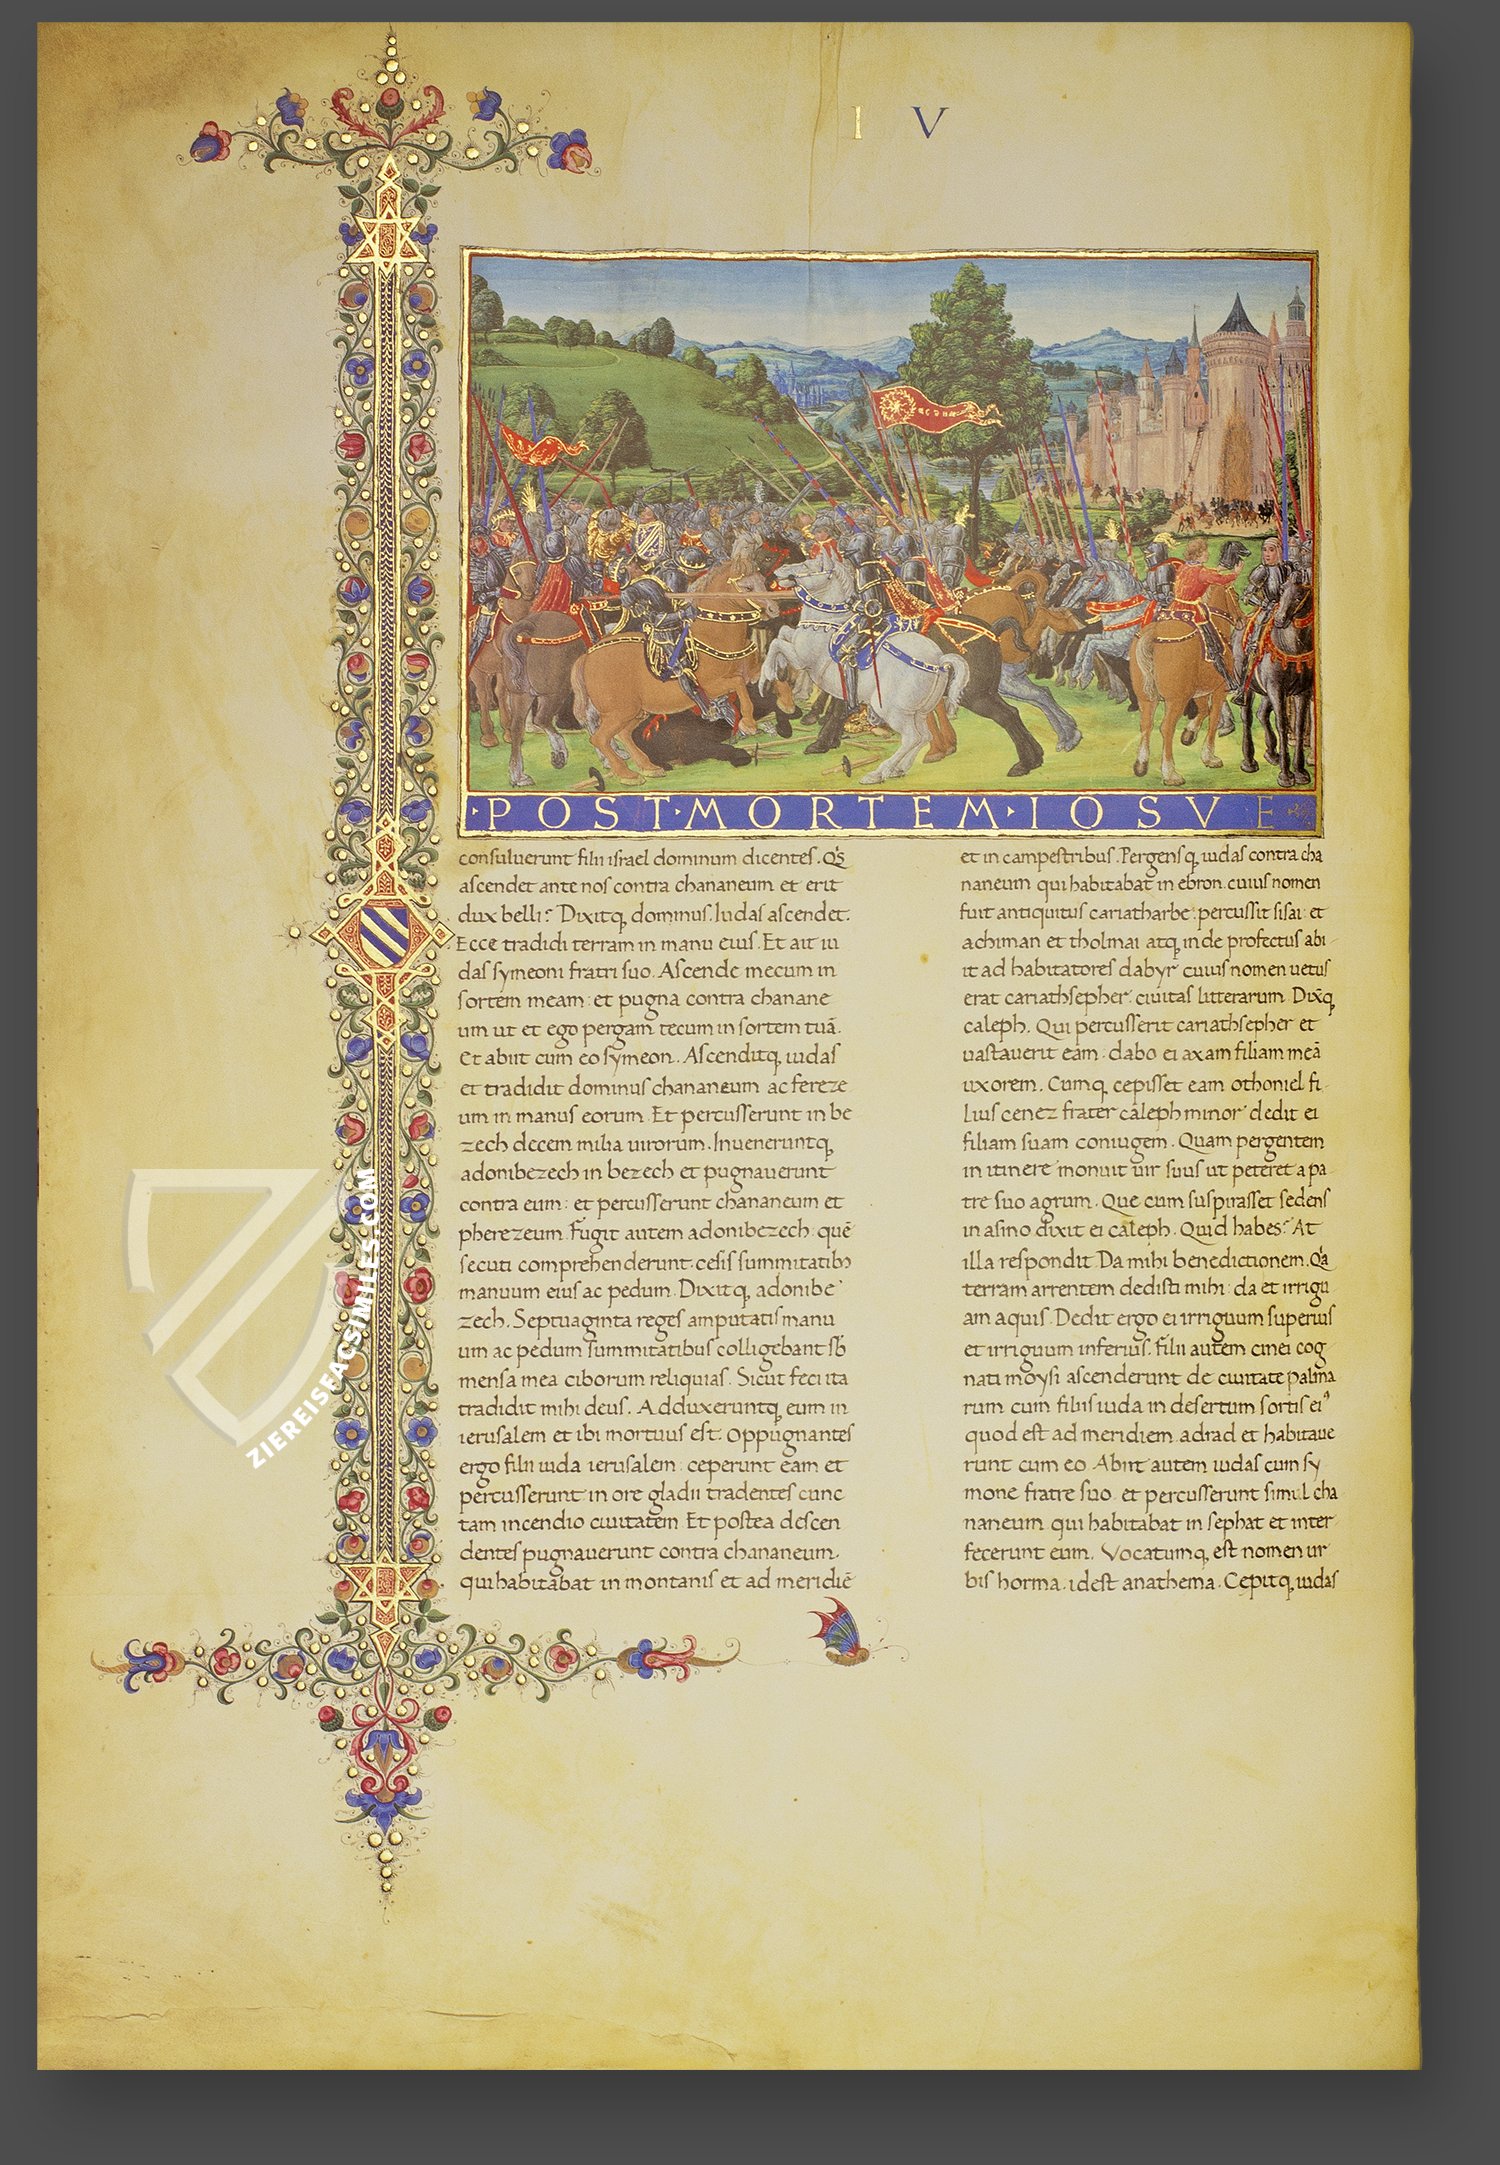 I V
IACVDA
·POST·MORTEM·IOSVE
consuluerunt filii israel dominum dicentes. Qͥs
ascendet ante nos contra chananeum et erit
dux belli? Dixitq; dominus. Iudas ascendet.
Ecce tradidi terram in manu eius. Et ait iu
das symeoni fratri suo. Ascende mecum in
sortem meam: et pugna contra chanane
um ut et ego pergam tecum in sortem tuā.
Et abiit cum eo symeon. Ascenditq; iudas
et tradidit dominus chananeum ac fereze
um in manus eorum. Et percusserunt in be
zech decem milia uirorum. Inueneruntq;
adonibezech in bezech et pugnauerunt
contra eum: et percusserunt chananeum et
pherezeum. Fugit autem adonibezech. quē
secuti comprehenderunt. cesis summitatib;
manuum eius ac pedum. Dixitq; adonibe
zech. Septuaginta reges amputatis manu
um ac pedum summitatibus colligebant sb̄
mensa mea ciborum reliquias. Sicut feci ita
tradidit mihi deus. Adduxeruntq; eum in
ierusalem et ibi mortuus est. Oppugnantes
ergo filii iuda ierusalem: ceperunt eam et
percusserunt in ore gladii tradentes cunc
tam incendio ciuitatem. Et postea descen
dentes pugnauerunt contra chananeum.
qui habitabat in montanis et ad meridiē
et in campestribus. Pergensq; iudas contra cha
naneum qui habitabat in ebron. cuius nomen
fuit antiquitus cariatharbe: percussit sisai et
achiman et tholmai atq; inde profectus abi
it ad habitatores dabyr cuius nomen uetus
erat cariathsepher: ciuitas litterarum. Dix̄q;
caleph. Qui percusserit cariathsepher et
uastauerit eam: dabo ei axam filiam meā
uxorem. Cumq; cepisset eam othoniel fi
lius cenez frater caleph minor dedit ei
filiam suam coniugem. Quam pergentem
in itinere monuit uir suus ut peteret a pa
tre suo agrum. Que cum suspirasset sedens
in asino dixit ei caleph. Quid habes? At
illa respondit. Da mihi benedictionem. Qͣ
terram arrentem dedisti mihi: da et irrigu
am aquis. Dedit ergo ei irriguum superius
et irriguum inferius. Filii autem cinei cog
nati moysi ascenderunt de ciuitate palma
rum cum filiis iuda in desertum sortis ei⁹
quod est ad meridiem. adrad et habitaue
runt cum eo. Abiit autem iudas cum sy
mone fratre suo. et percusserunt simul cha
naneum qui habitabat in sephat et inter
fecerunt eum. Vocatumq; est nomen ur
bis horma. idest anathema. Cepitq; iudas
ZIEREISFACSIMILES.COM